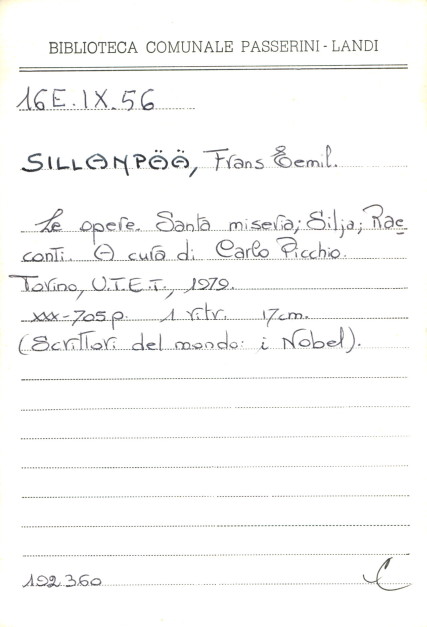 BIBLIOTECA COMUNALE PASSERINI - LANDI
16E.IX.56
SILLANPÄÄ, Frans Eemil.
Le opere. Santa miseria; Silja; Rac=
conti. A cura di Carlo Picchio.
Torino, U.T.E.T., 1979.
xxx-705p. 1 ritr. 17cm.
(Scrittori del mondo: i Nobel).
192360